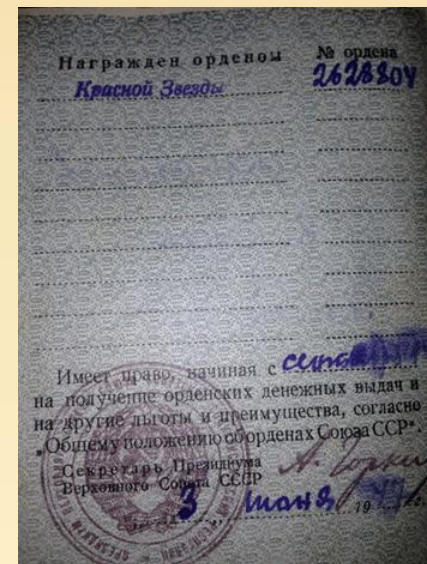 Награжден орденом № ордена
Красной Звезды 2628804
Имеет право, начиная с
на получение орденских денежных выдач и
на другие льготы и преимущества, согласно
„Общему положению об орденах Союза ССР".
Секретарь Президиума
Верховного Совета СССР
3 июня 19 г.